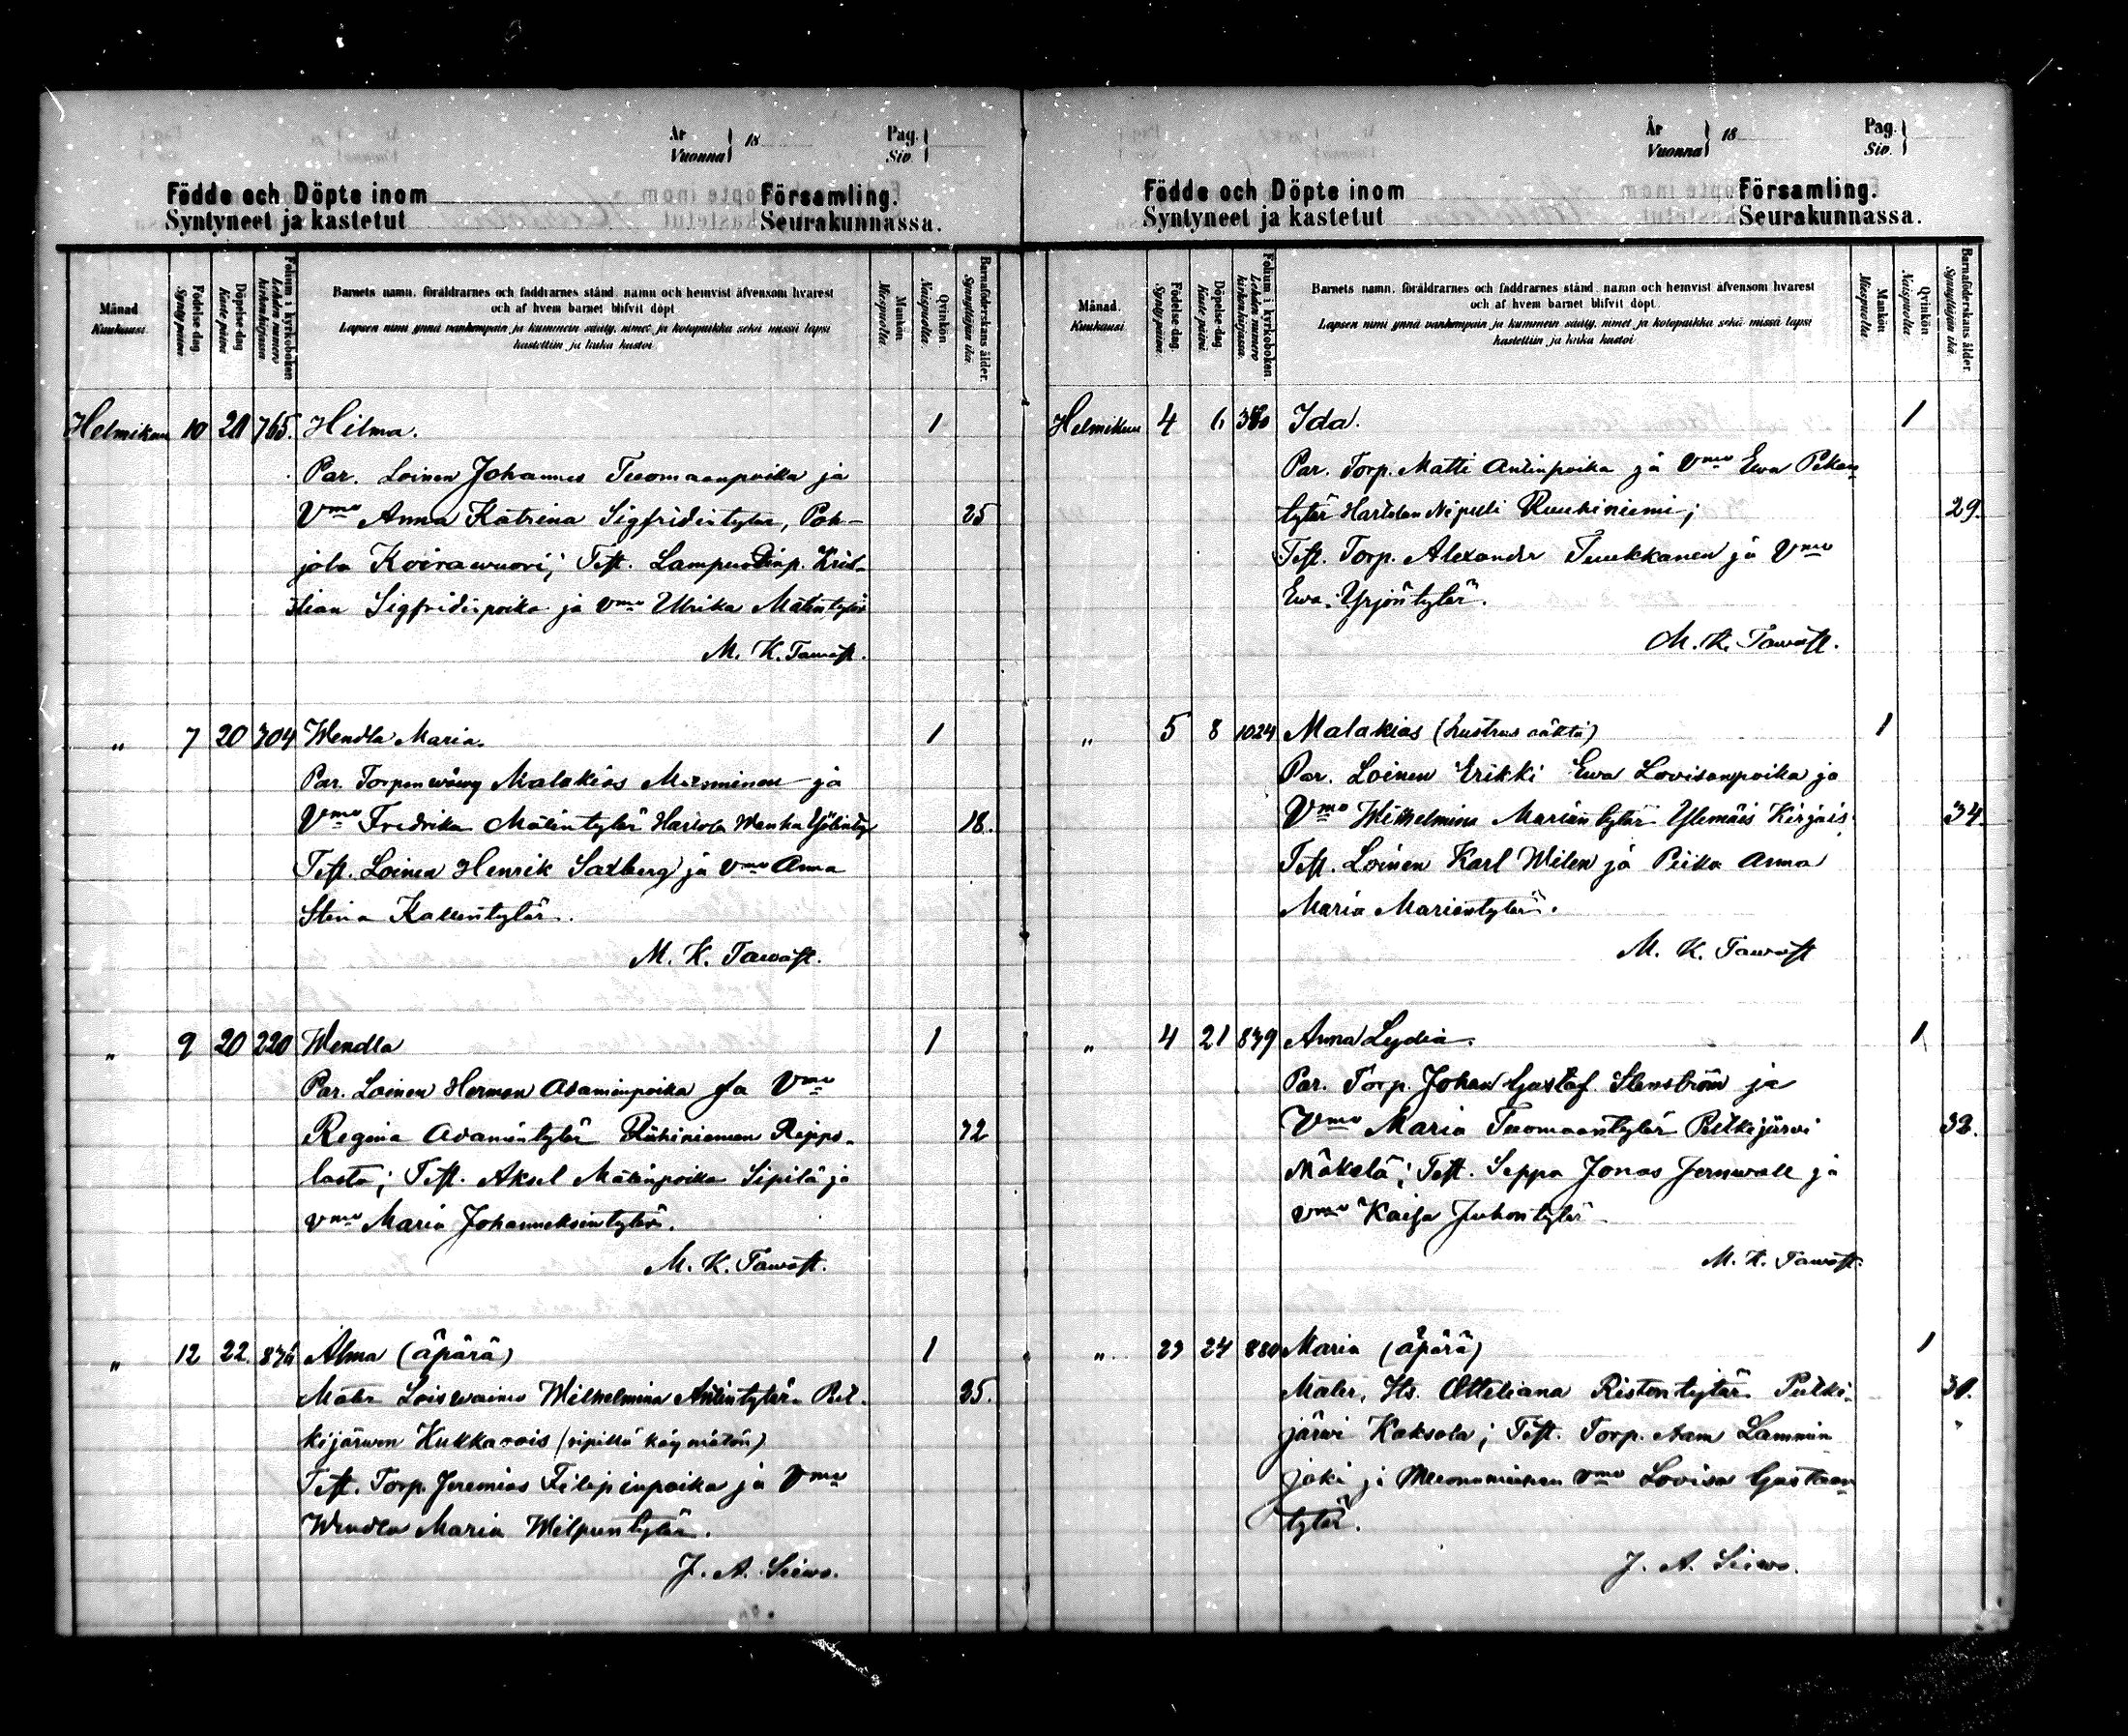 År
Vuonna } 18
Pag.
Siv. }
Födde och Döpte inom Församling.
Syntyneet ja kastetut Seurakunnassa.
Månad. Kuukausi.
Födelse-dag. Syntypäivä.
Döpelse-dag. Kastepäivä.
Folium i kyrkoboken. Lehden numero kirkonkirjassa.
Barnets namn, föräldrarnes och faddrarnes stånd, namn och hemvist äfvensom hvarest
och af hvem barnet blifvit döpt
Lapsen nimi ynnä vanhempain ja kummein sääty, nimet ja kotopaikka sekä missä lapsi
kastettiin ja kuka kastoi
Mankön. Miespuolta.
Qvinkön. Naispuolta.
Barnaföderskans ålder. Synnyttäjän ikä.
Helmikuu 10 20 765. Hilma. 1
Par. Loinen Johannes Tuomaanpoika ja
Vmo Anna Katrina Sigfridintytär, Poh- 25
jola Koirawuori; Test. Lampuodinp. Kris-
tian Sigfridinpoika ja vmo Ulrika Matintytär
M. K. Tawast.
" 7 20 304 Wendla Maria. 1
Par. Torpanwäwy Malakias Mursminen ja
Vmo Fredrika Matintytär Hartola 18.
Test. Loinen Henrik Saxberg ja vmo Anna
Stina Kallentytär.
M. K. Tawast.
" 9 20 220 Wendla 1
Par. Loinen Herman Adaminpoika ja Vmo
Regina Adamintytär Ruhiniemen Reippo- 42
lasta; Test. Aksel Matinpoika Sipilä ja
vmo Maria Johanneksentytär.
M. K. Tawast.
" 12 22. 876 Alma (äpärä) 1
Mater Loiswaimo Wilhelmina Antintytär Put- 35.
kijärwen Kukkasois (ripillä käymätön)
Test. Torp. Jeremias Filipinpoika ja Vmo
Wendla Maria Wilpuntytär.
J. A. Siewo.
År
Vuonna } 18
Pag.
Siv. }
Födde och Döpte inom Församling.
Syntyneet ja kastetut Seurakunnassa.
Månad. Kuukausi.
Födelse-dag. Syntypäivä.
Döpelse-dag. Kastepäivä.
Folium i kyrkoboken. Lehden numero kirkonkirjassa.
Barnets namn, föräldrarnes och faddrarnes stånd, namn och hemvist äfvensom hvarest
och af hvem barnet blifvit döpt
Lapsen nimi ynnä vanhempain ja kummein sääty, nimet ja kotopaikka sekä missä lapsi
kastettiin ja kuka kastoi
Mankön. Miespuolta.
Qvinkön. Naispuolta.
Barnaföderskans ålder. Synnyttäjän ikä.
Helmikuu 4 6 Ida. 1
Par. Torp. Matti Antinpoika ja Vmo Ewa Pekan-
tytär Hartolan Nipuli Ruuhiniemi; 29.
Test. Torp. Alexander Tuukkanen ja Vmo
Ewa Yrjöntytär.
M. K. Tawast.
" 5 8 1024 Malakias 1
Par. Loinen Erikki Ewa Lovisanpoika ja
Vmo Wilhelmina Mariantytär Ylemäis Kirjais 34.
Test. Loinen Karl Wilen ja Piika Anna
Maria Mariantytär.
M. K. Tawast
" 4 21 839 Anna Lydia. 1
Par. Torp. Johan Gustaf Stenström ja
Vmo Maria Tuomaantytär Putkijärvi 32.
Mäkelä; Test. Seppä Jonas Jernwall ja
vmo Kaisa Juhontytär
M. K. Tawast.
" 23 24 880 Maria (äpärä) 1
Mater, Its. Otteliana Ristontytär Putki- 30.
järwi Kaksola; Test. Torp. Aam Lammin
joki ja vmo Lovisa Gustaan-
tytär.
J. A. Siewo.